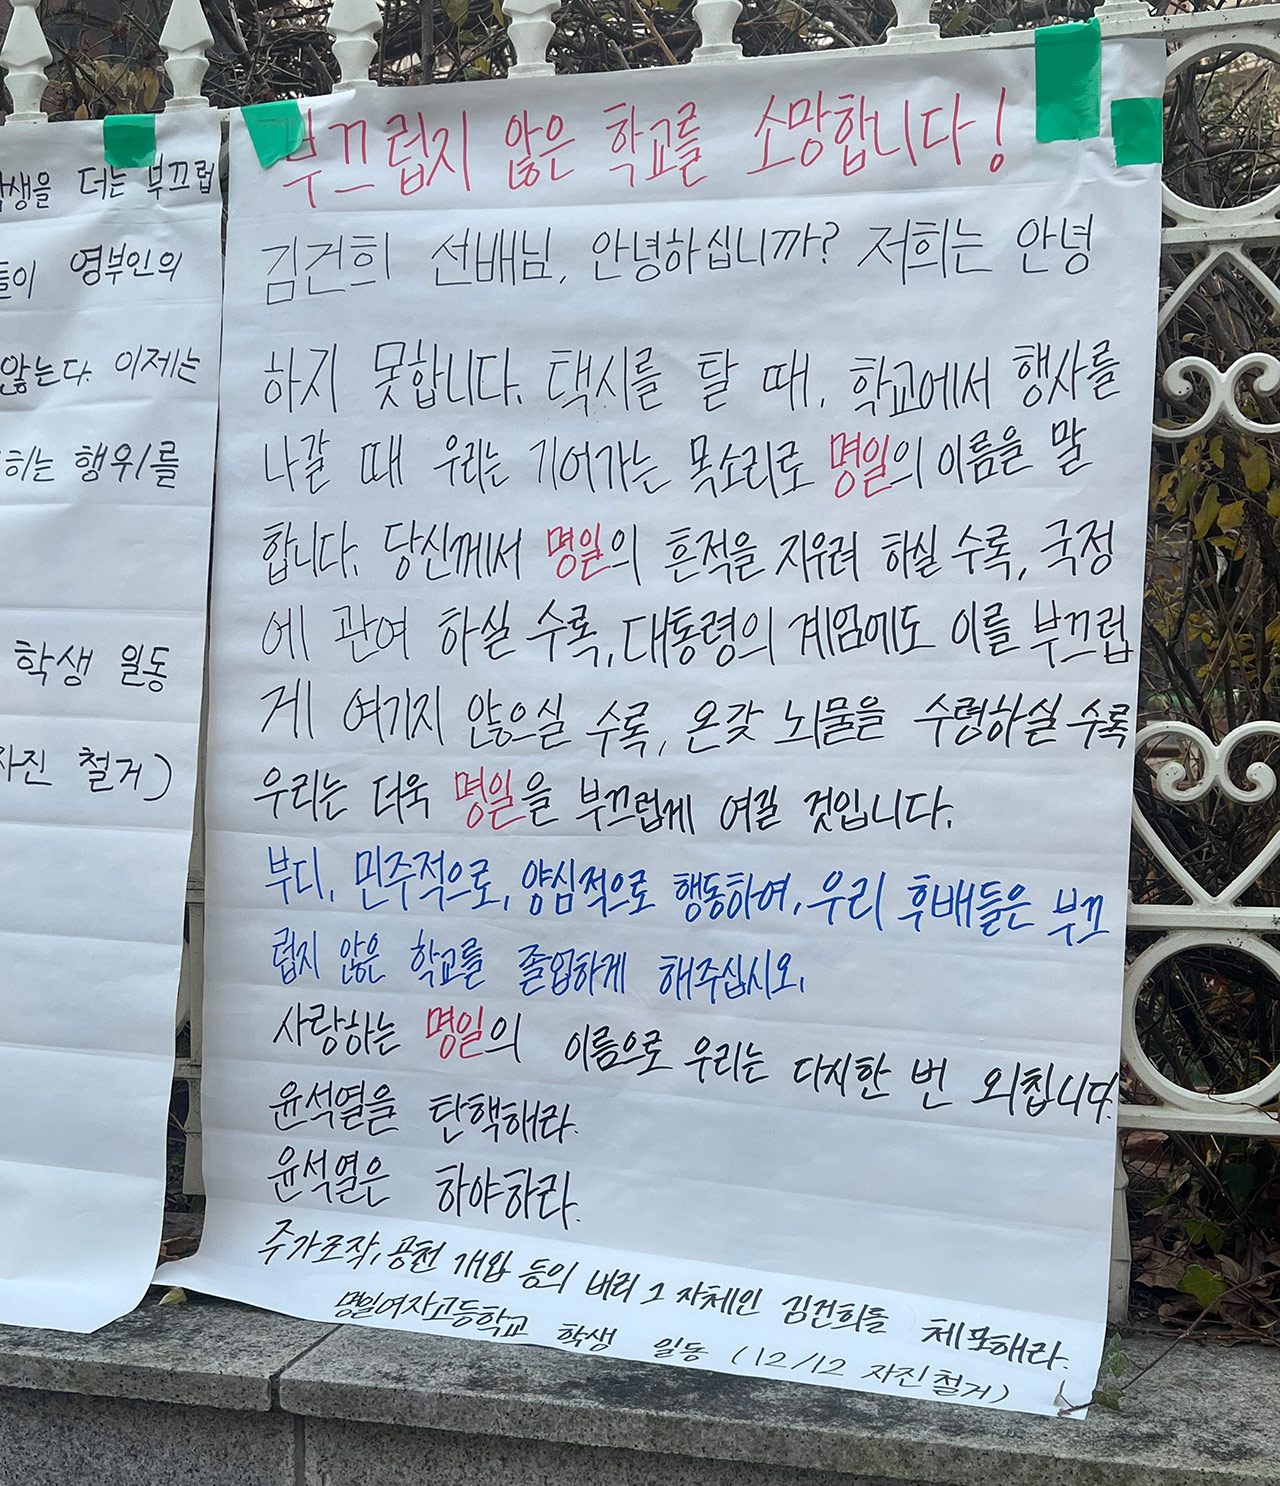 생을 더는 부끄럽
들이 영부인의
않는다. 이제는
하는 행위를
학생 일동
자진 철거)
부끄럽지 않은 학교를 소망합니다!
김건희 선배님, 안녕하십니까? 저희는 안녕
하지 못합니다. 택시를 탈 때, 학교에서 행사를
나갈 때 우리는 기어가는 목소리로 명일의 이름을 말
합니다. 당신께서 명일의 흔적을 지우려 하실 수록, 국정
에 관여 하실 수록, 대통령의 계엄에도 이를 부끄럽
게 여기지 않으실 수록, 온갖 뇌물을 수령하실 수록
우리는 더욱 명일을 부끄럽게 여길 것입니다.
부디, 민주적으로, 양심적으로 행동하여, 우리 후배들은 부끄
럽지 않은 학교를 졸업하게 해주십시오.
사랑하는 명일의 이름으로 우리는 다시한 번 외칩니다.
윤석열을 탄핵해라.
윤석열은 하야하라.
주가조작, 공천 개입 등의 비리 그 자체인 김건희를 체포해라.
명일여자고등학교 학생 일동 (12/12 자진철거)